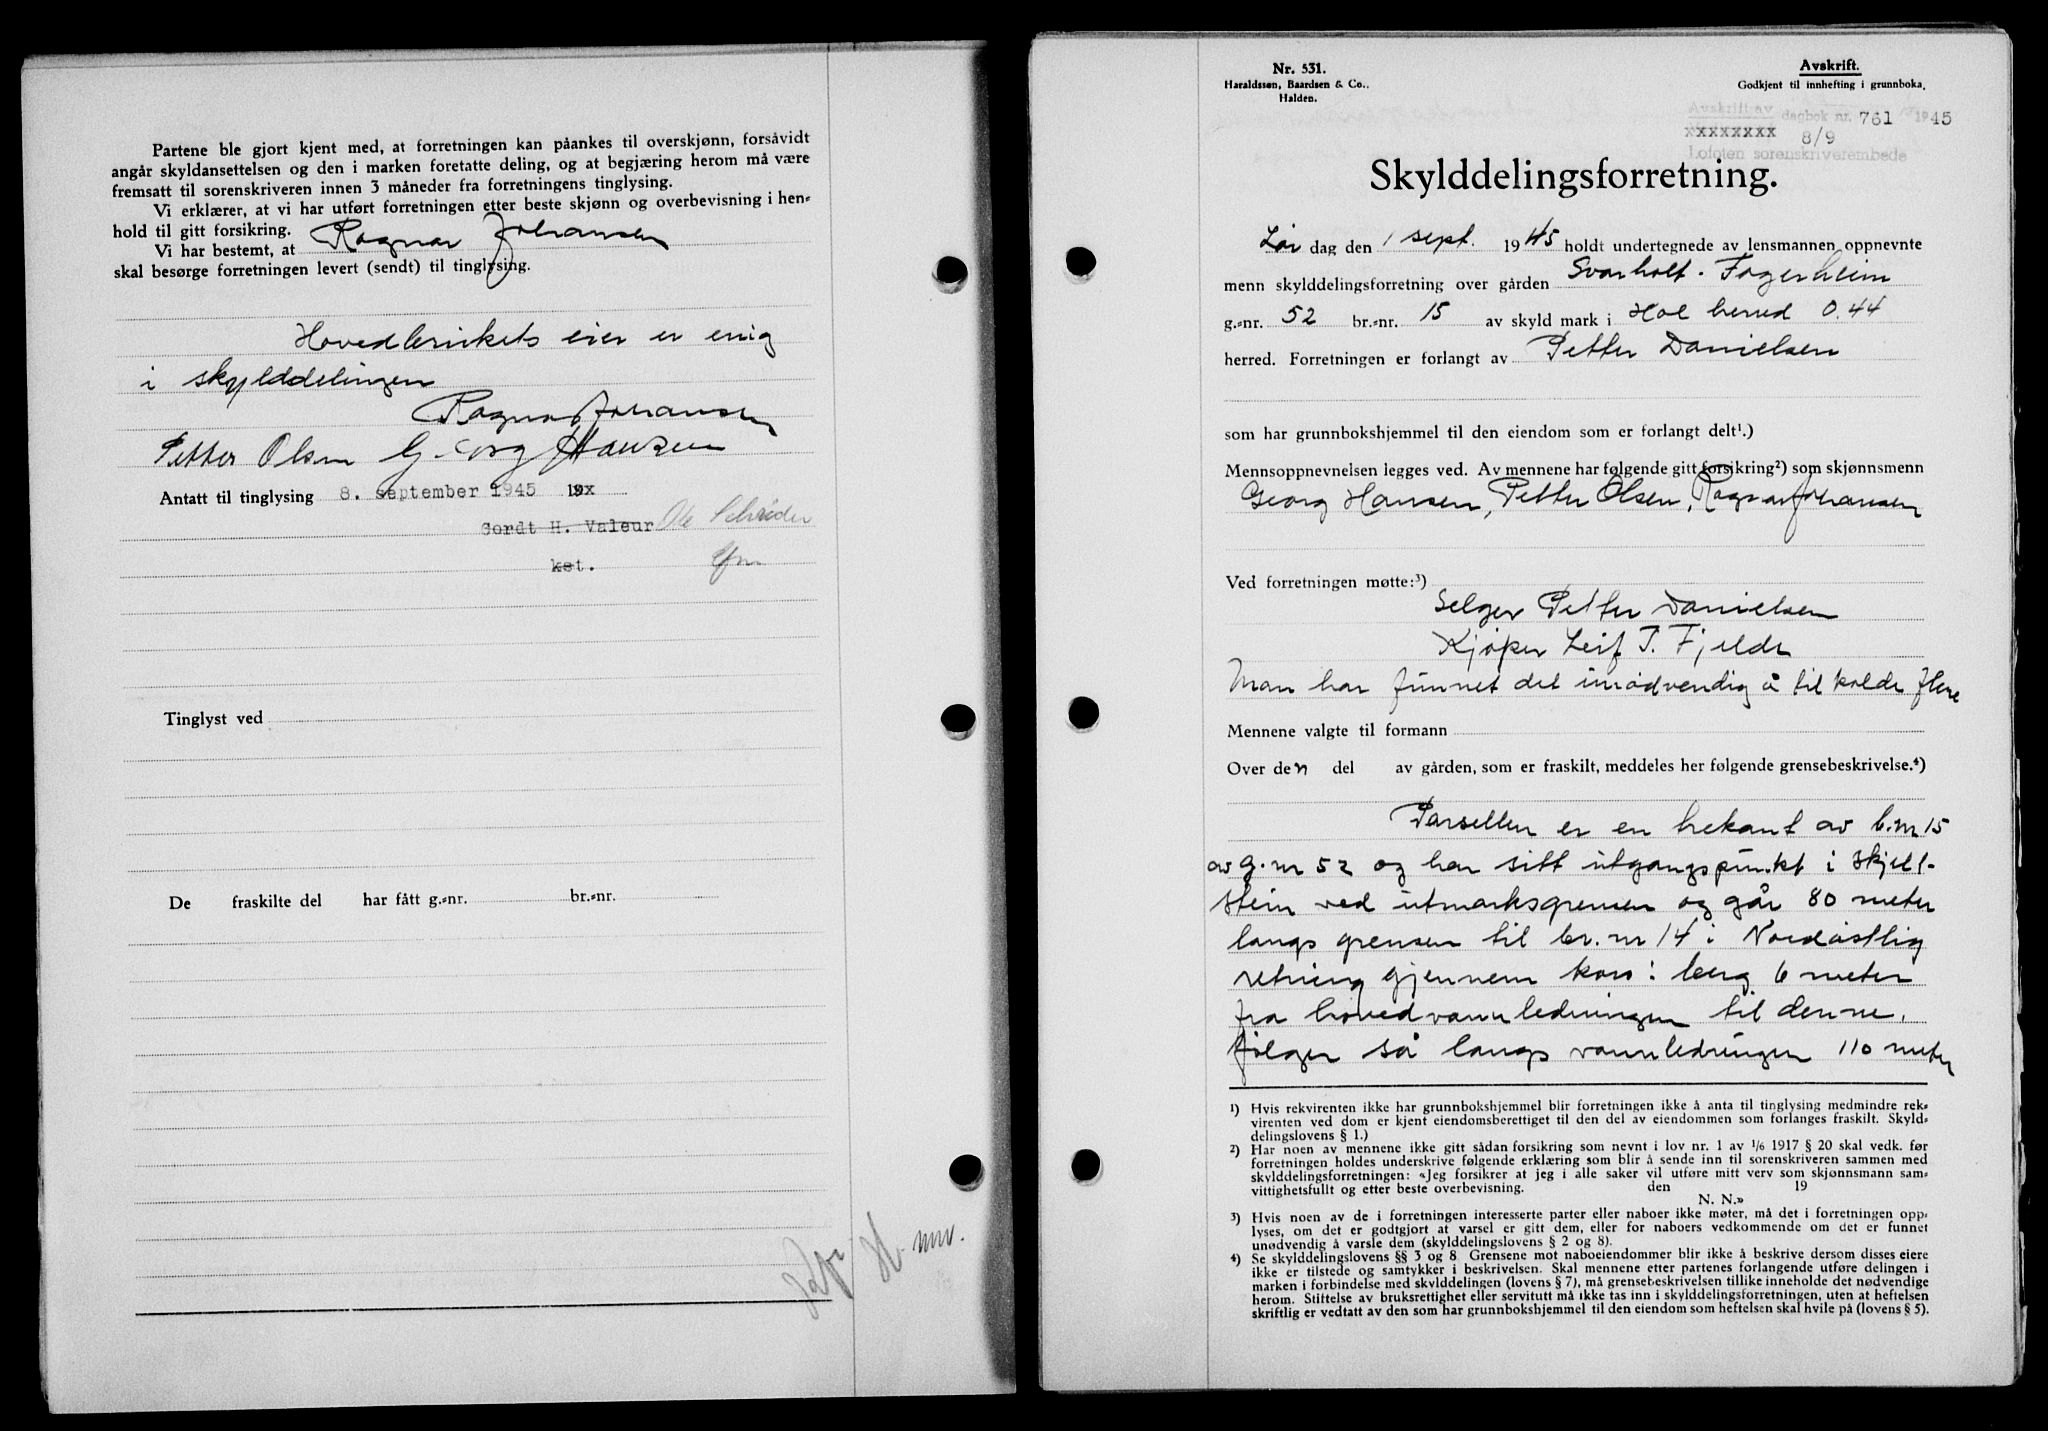 Partene ble gjort kjent med, at forretningen kan påankes til overskjønn, forsåvidt
angår skyldansettelsen og den i marken foretatte deling, og at begjæring herom må være
fremsatt til sorenskriveren innen 3 måneder fra forretningens tinglysing.
Vi erklærer, at vi har utført forretningen etter beste skjønn og overbevisning i hen-
hold til gitt forsikring.
Vi har bestemt, at Ragnar Johansen
skal besørge forretningen levert (sendt) til tinglysing.
Hovedbrukets eier er enig
i skylddelingen
Ragnar Johansen
Petter Olsen Georg Hansen
Antatt til tinglysing 8. september 1945 19xx
Gordt H. Valeur Ole Schrøder
kst.
Tinglyst ved
De fraskilte del har fått g.-nr. br.-nr.
Nr. 531.
Haraldssøn, Baardsen & Co.,
Halden.
Avskrift.
Godkjent til innhefting i grunnboka.
Avskrift av dagbok nr. 761 1945
xxxxxxxx 8/9
Lofoten sorenskriverembede
Skylddelingsforretning.
Lør dag den 1 sept. 1945 holdt undertegnede av lensmannen oppnevnte
menn skylddelingsforretning over gården Svarholt - Fagerheim
g.-nr. 52 br.-nr. 15 av skyld mark i Hol herred 0.44
herred. Forretningen er forlangt av Petter Danielsen
som har grunnbokshjemmel til den eiendom som er forlangt delt¹.)
Mennsoppnevnelsen legges ved. Av mennene har følgende gitt forsikring²) som skjønnsmenn
Georg Hansen, Petter Olsen, Ragnar Johansen
Ved forretningen møtte:³)
Selger Petter Danielsen
Kjøper Leif T. Fjelde
Man har funnet det unødvendig å tilkalde flere
Mennene valgte til formann
Over den del av gården, som er fraskilt, meddeles her følgende grensebeskrivelse.⁴)
Parsellen er en trekant av b.nr 15
av g.nr 52 og har sitt utgangspunkt i skjell-
stein ved utmarksgrensen og går 80 meter
langs grensen til br.nr 14 i Nordøstlig
retning gjennem kors i berg 6 meter
fra hovedvannledningen til denne,
følger så langs vannledningen 110 meter
1) Hvis rekvirenten ikke har grunnbokshjemmel blir forretningen ikke å anta til tinglysing medmindre rek-
virenten ved dom er kjent eiendomsberettiget til den del av eiendommen som forlanges fraskilt. Skyld-
delingslovens § 1.)
2) Har noen av mennene ikke gitt sådan forsikring som nevnt i lov nr. 1 av 1/6 1917 § 20 skal vedk. før
forretningen holdes underskrive følgende erklæring som blir å sende inn til sorenskriveren sammen med
skylddelingsforretningen: «Jeg forsikrer at jeg i alle saker vil utføre mitt verv som skjønnsmann sam-
vittighetsfullt og etter beste overbevisning. den 19
N. N.»
3) Hvis noen av de i forretningen interesserte parter eller naboer ikke møter, må det i forretningen opp-
lyses, om det er godtgjort at varsel er gitt dem, eller for naboers vedkommende om det er funnet
unødvendig å varsle dem (skylddelingslovens § 2 og 8).
4) Se skylddelingslovens §§ 3 og 8. Grensene mot naboeiendommer blir ikke å beskrive dersom disses eiere
ikke er tilstede og samtykker i beskrivelsen. Skal mennene etter partenes forlangende utføre delingen i
marken i forbindelse med skylddelingen (lovens § 7), må grensebeskrivelsen tillike inneholde det nødvendige
herom. Stiftelse av bruksrettighet eller servitutt må ikke tas inn i skylddelingsforretningen, uten at heftelsen
skriftlig er vedtatt av den som har grunnbokshjemmel til den eiendom som heftelsen skal hvile på (lovens § 5).